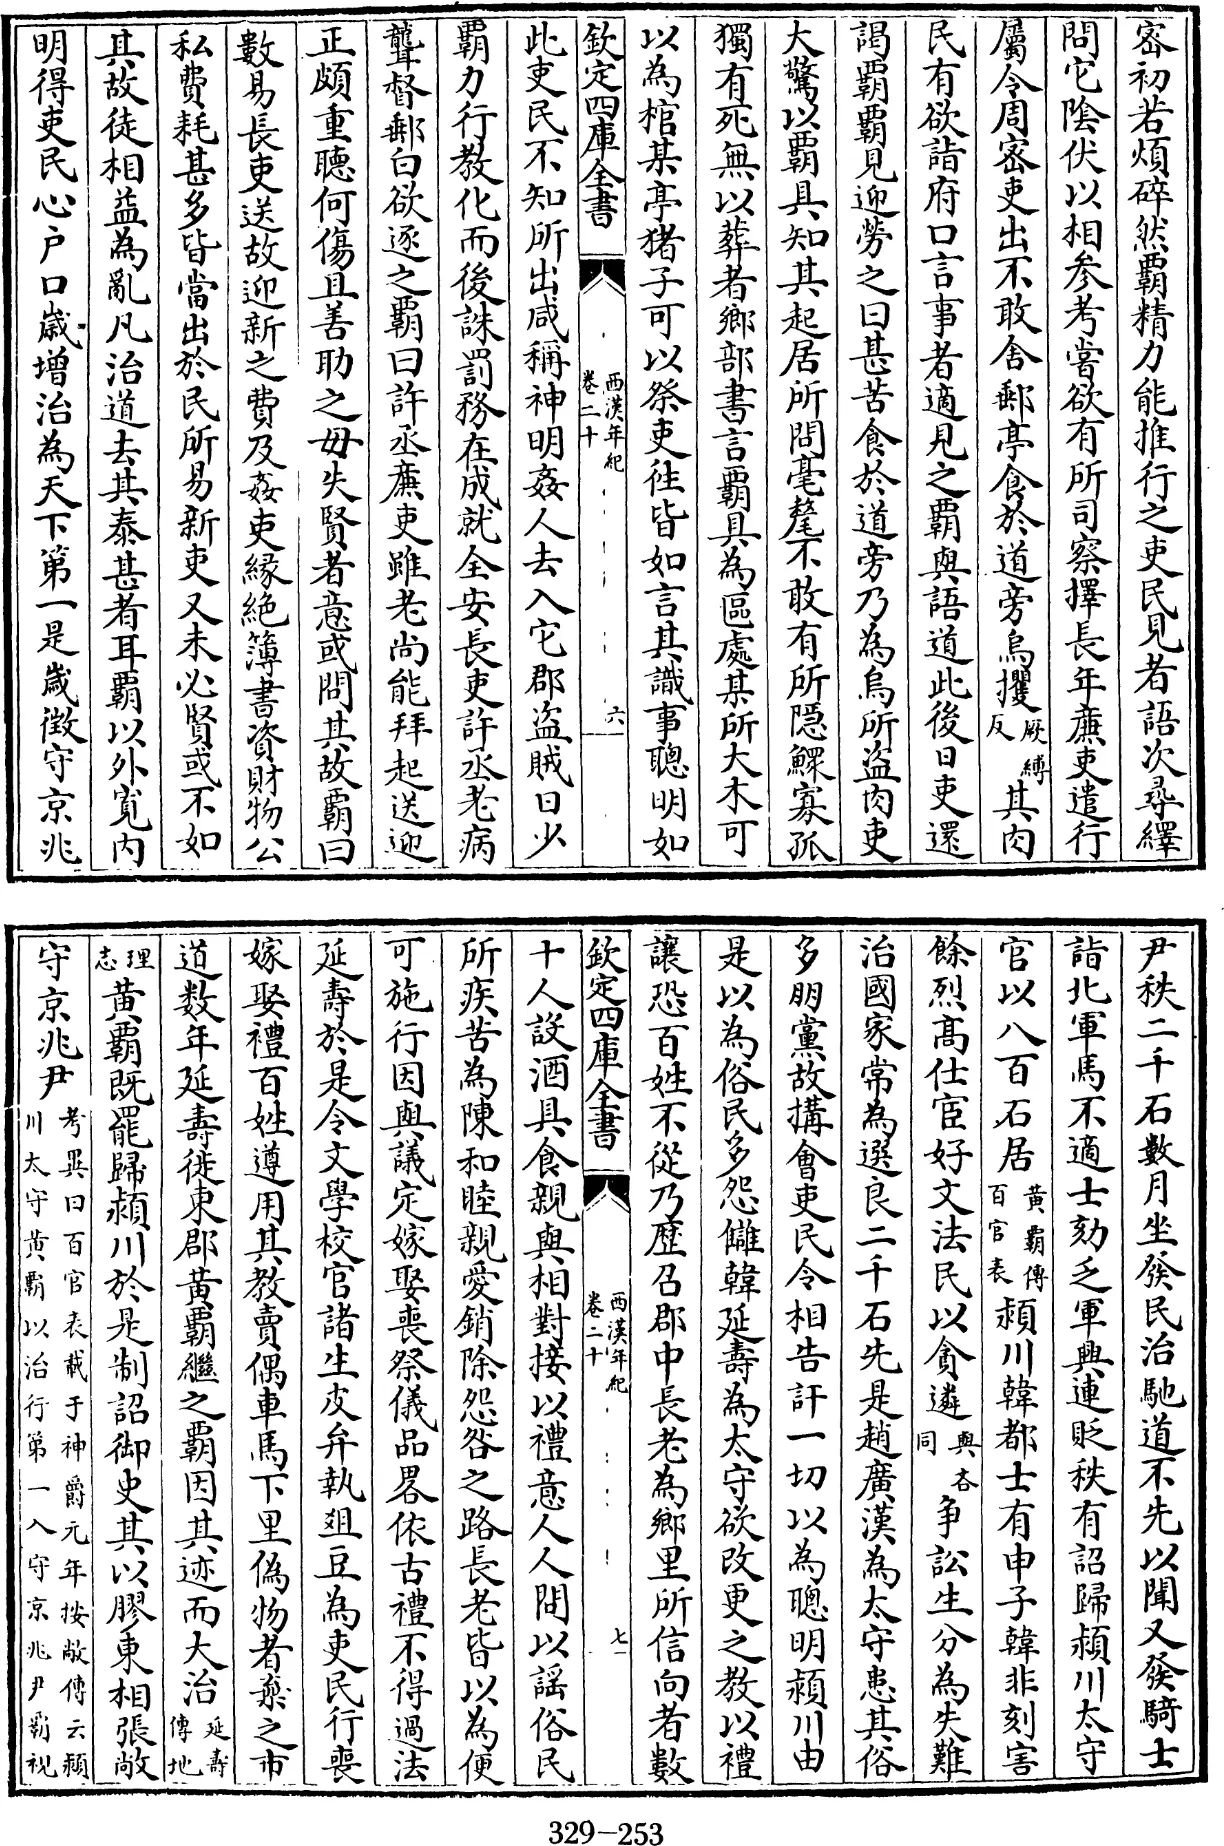 密初若煩碎然霸精力能推行之吏民見者語次尋繹
問它陰伏以相參考嘗欲有所司察擇長年廉吏遣行
屬令周密吏出不敢舍郵亭食於道旁烏攫厥縛反其肉
民有欲詣府口言事者適見之霸與語道此後日吏還
謁霸霸見迎勞之曰甚苦食於道旁乃為烏所盜肉吏
大驚以霸具知其起居所問毫釐不敢有所隠鰥寡孤
獨有死無以葬者鄉部書言霸具為區處某所大木可
以為棺某亭猪子可以祭吏徃皆如言其識事聰明如
欽定四庫全書 西漢年紀 卷二十 六
此吏民不知所出咸稱神明姦人去入它郡盜賊日少
霸力行教化而後誅罰務在成就全安長吏許丞老病
聾督郵白欲逐之霸曰許丞廉吏雖老尚能拜起送迎
正頗重聽何傷且善助之毋失賢者意或問其故霸曰
數易長吏送故迎新之費及姦吏緣絶簿書資財物公
私費耗甚多皆當出於民所易新吏又未必賢或不如
其故徒相益為亂凡治道去其泰甚者耳霸以外寛内
明得吏民心户口歲增治為天下第一是歲徴守京兆
尹秩二千石數月坐發民治馳道不先以聞又發騎士
詣北軍馬不適士劾乏軍興連貶秩有詔歸潁川太守
官以八百石居黄霸傳百官表潁川韓都士有申子韓非刻害
餘烈髙仕宦好文法民以貪遴與吝同争訟生分為失難
治國家常為選良二千石先是趙廣漢為太守患其俗
多朋黨故搆會吏民令相告訐一切以為聰明潁川由
是以為俗民多怨讎韓延壽為太守欲改更之教以禮
讓恐百姓不從乃歴召郡中長老為鄉里所信向者數
欽定四庫全書 西漢年紀 卷二十 七
十人設酒具食親與相對接以禮意人人問以謡俗民
所疾苦為陳和睦親愛銷除怨咎之路長老皆以為便
可施行因與議定嫁娶喪祭儀品畧依古禮不得過法
延壽於是令文學校官諸生皮弁執俎豆為吏民行喪
嫁娶禮百姓遵用其教賣偶車馬下里偽物者棄之市
道数年延壽徙東郡黄霸繼之霸因其迹而大治延壽傳地
理志黄霸既罷歸潁川於是制詔御史其以膠東相張敞
守京兆尹考異曰百官表載于神爵元年按敞傳云潁川太守黄霸以治行第一入守京兆尹霸視
329-253